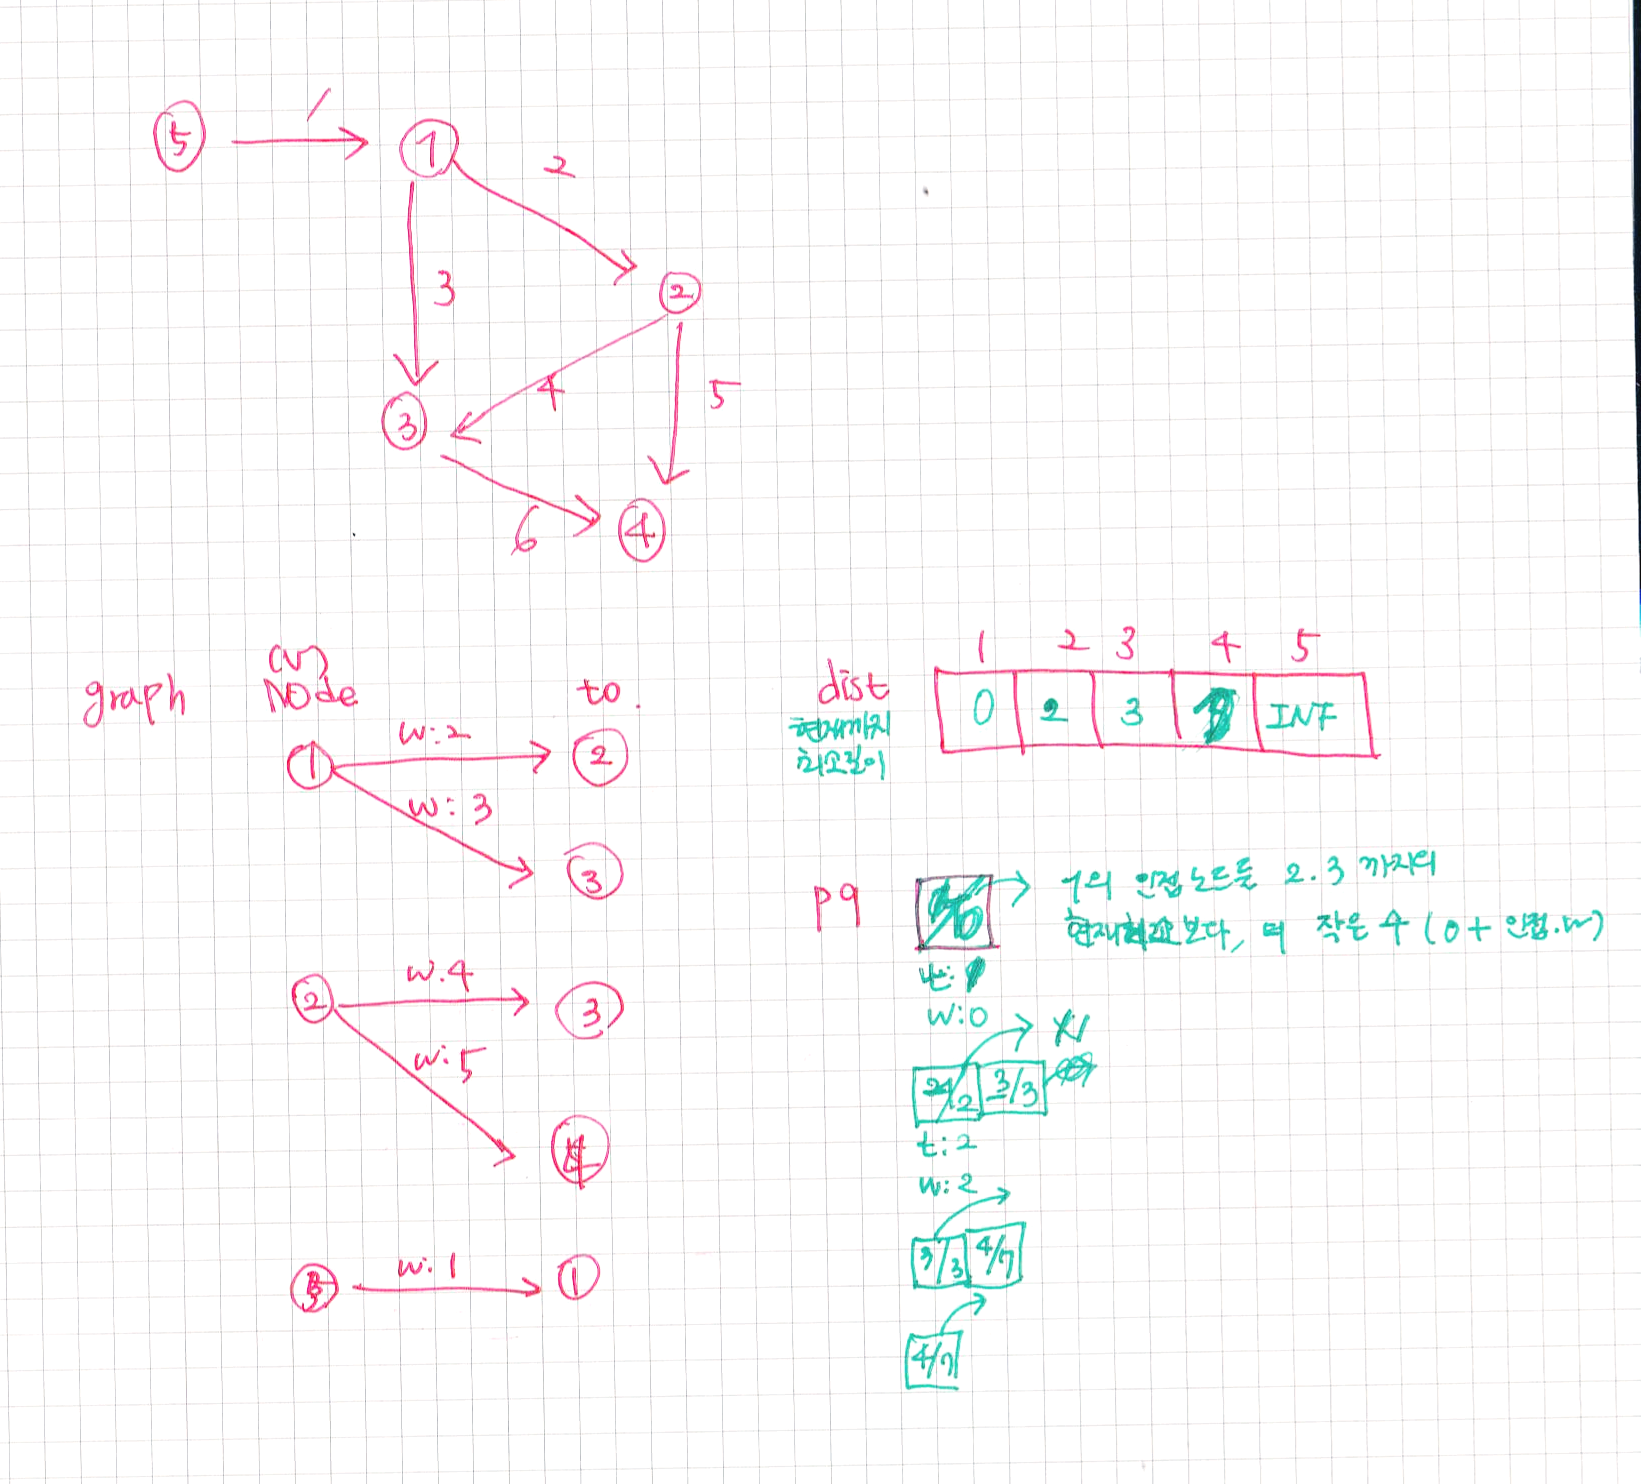 5 1 1
2
3
2
4
5
3
6
4
graph
(V)
Node
to.
1 w:2 2
w:3
3
2 w.4 3
w:5
4
w:1 1
1 2 3 4 5
dist
현재까지
최소길이
0 2 3 INF
pq
1의 인접노드들 2.3 까지의
현재최소보다, 더 작은 수 (0+인접.w)
w:0
/2 3/3
t:2
w:2
3/3 4/7
4/7